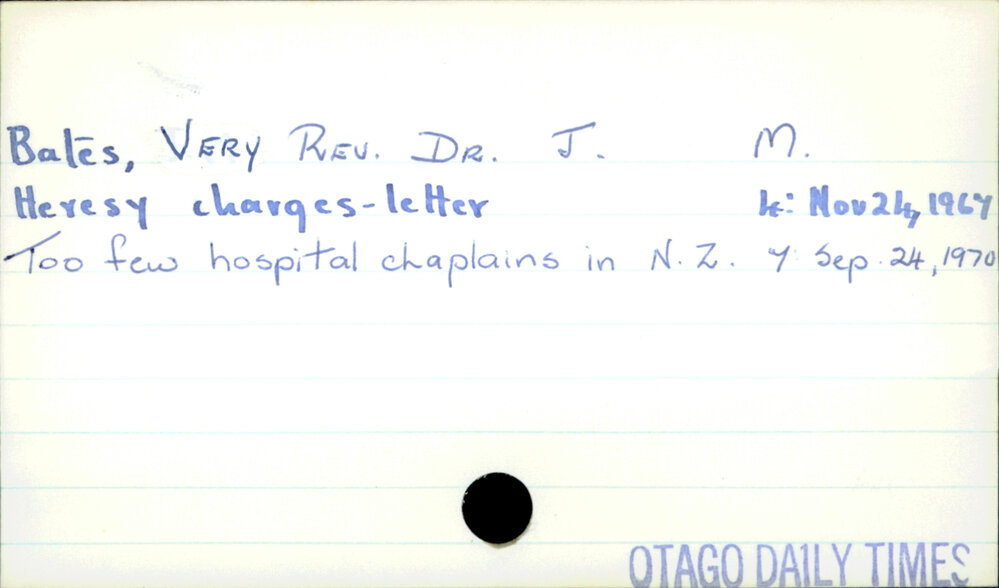 Bates, VERY REV. DR. J. M.
Heresy charges-letter 4: Nov 24, 1967
Too few hospital chaplains in N.Z. 7 Sep. 24, 1970
OTAGO DAILY TIMES